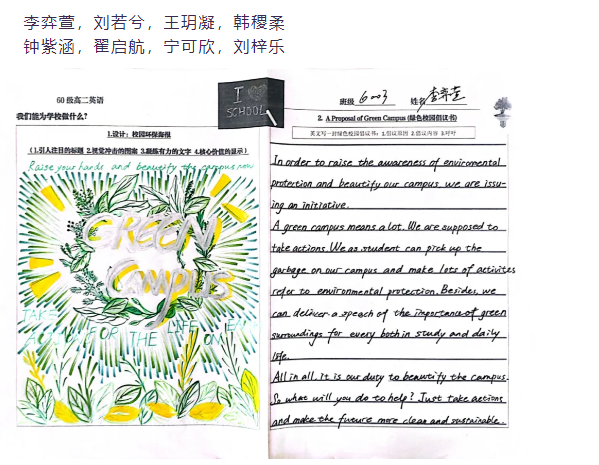 李弈萱，刘若兮，王玥凝，韩稷柔
钟紫涵，翟启航，宁可欣，刘梓乐
60级高二英语
我们能为学校做什么？
I
SCHOOL
班级 6003 姓名 李弈萱
1.设计：校园环保海报
（1.引人注目的标题 2.视觉冲击的图案 3.凝练有力的文字 4.核心价值的显示）
Raise your hands and beautify the campus now
GREEN
Campus
TAKE
FOR THE LIFE ON
2. A Proposal of Green Campus (绿色校园倡议书)
英文写一封绿色校园倡议书：1.倡议原因 2.倡议内容 3.呼吁
In order to raise the awareness of enviromental
protection and beautify our campus, we are issu-
ing an initiative.
A green campus means a lot. We are supposed to
take actions. We as student can pick up the
garbage on our campus and make lots of activites
refer to environmental protection. Besides, we
can deliver a speach of the importance of green
surroundings for every both in study and daily
life.
All in all, it is our duty to beautify the campus.
So what will you do to help? Just take actions
and make the future more clean and sustainable.